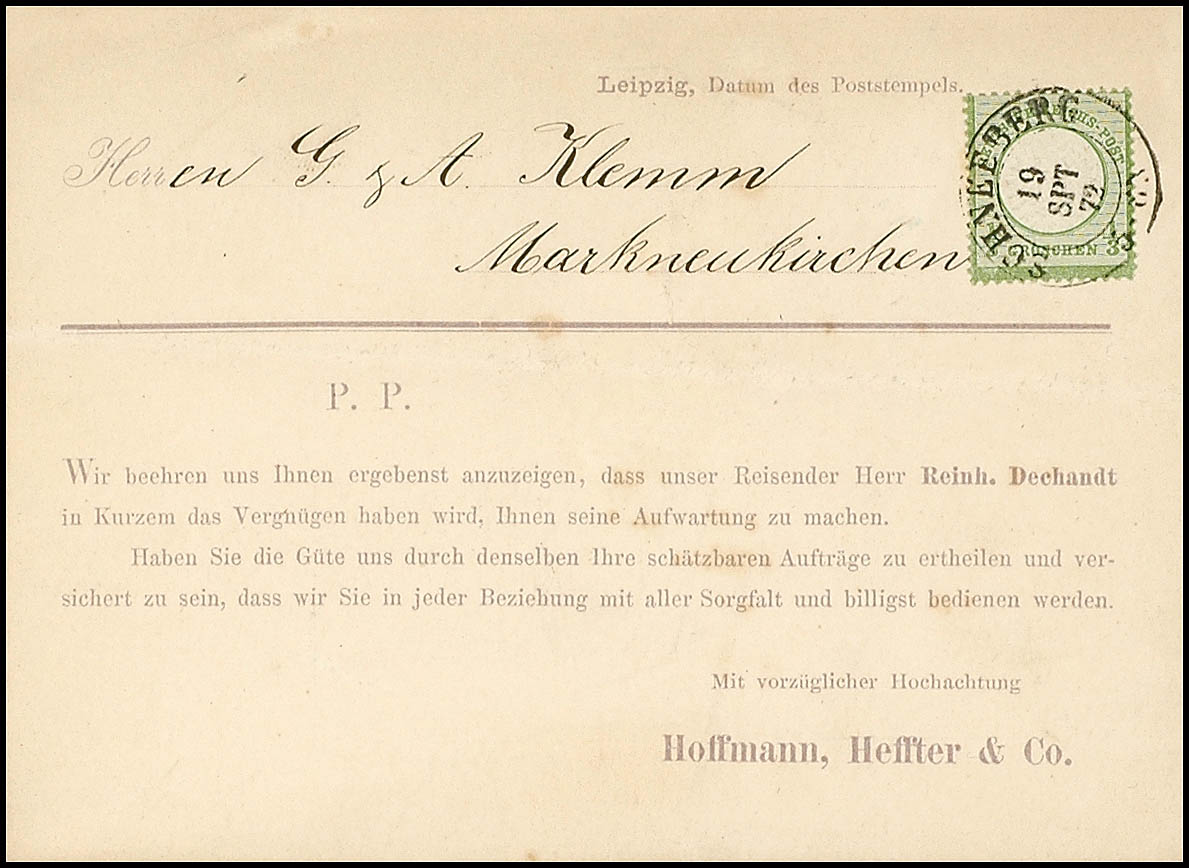 Leipzig, Datum des Poststempels.
Herren G. & A. Klemm
Markneukirchen
SCHNEEBERG
19
SPT
72
GROSCHEN
P. P.
Wir beehren uns Ihnen ergebenst anzuzeigen, dass unser Reisender Herr Reinh. Dechandt
in Kurzem das Vergnügen haben wird, Ihnen seine Aufwartung zu machen.
Haben Sie die Güte uns durch denselben Ihre schätzbaren Aufträge zu ertheilen und ver-
sichert zu sein, dass wir Sie in jeder Beziehung mit aller Sorgfalt und billigst bedienen werden.
Mit vorzüglicher Hochachtung
Hoffmann, Heffter & Co.